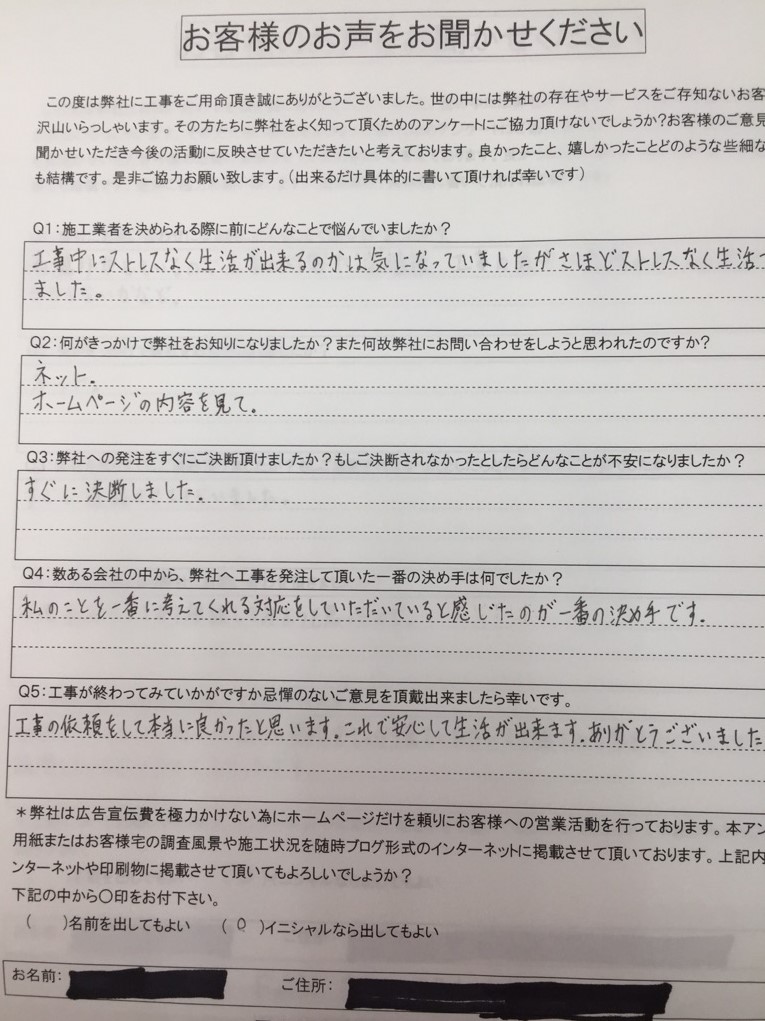 お客様のお声をお聞かせください
この度は弊社に工事をご用命頂き誠にありがとうございました。世の中には弊社の存在やサービスをご存知ないお客
沢山いらっしゃいます。その方たちに弊社をよく知って頂くためのアンケートにご協力頂けないでしょうか?お客様のご意見
聞かせいただき今後の活動に反映させていただきたいと考えております。良かったこと、嬉しかったことどのような些細な
も結構です。是非ご協力お願い致します。(出来るだけ具体的に書いて頂ければ幸いです)
Q1:施工業者を決められる際に前にどんなことで悩んでいましたか?
工事中にストレスなく生活が出来るのかは気になっていましたがさほどストレスなく生活
ました。
Q2:何がきっかけで弊社をお知りになりましたか?また何故弊社にお問い合わせをしようと思われたのですか?
ネット。
ホームページの内容を見て。
Q3:弊社への発注をすぐにご決断頂けましたか?もしご決断されなかったとしたらどんなことが不安になりましたか?
すぐに決断しました。
Q4:数ある会社の中から、弊社へ工事を発注して頂いた一番の決め手は何でしたか?
私のことを一番に考えてくれる対応をしていただいていると感じたのが一番の決め手です。
Q5:工事が終わってみていかがですか忌憚のないご意見を頂戴出来ましたら幸いです。
工事の依頼をして本当に良かったと思います。これで安心して生活が出来ます。ありがとうございました
*弊社は広告宣伝費を極力かけない為にホームページだけを頼りにお客様への営業活動を行っております。本アン
用紙またはお客様宅の調査風景や施工状況を随時ブログ形式のインターネットに掲載させて頂いております。上記内
ンターネットや印刷物に掲載させて頂いてもよろしいでしょうか?
下記の中から〇印をお付下さい。
( )名前を出してもよい (〇)イニシャルなら出してもよい
お名前: ご住所: